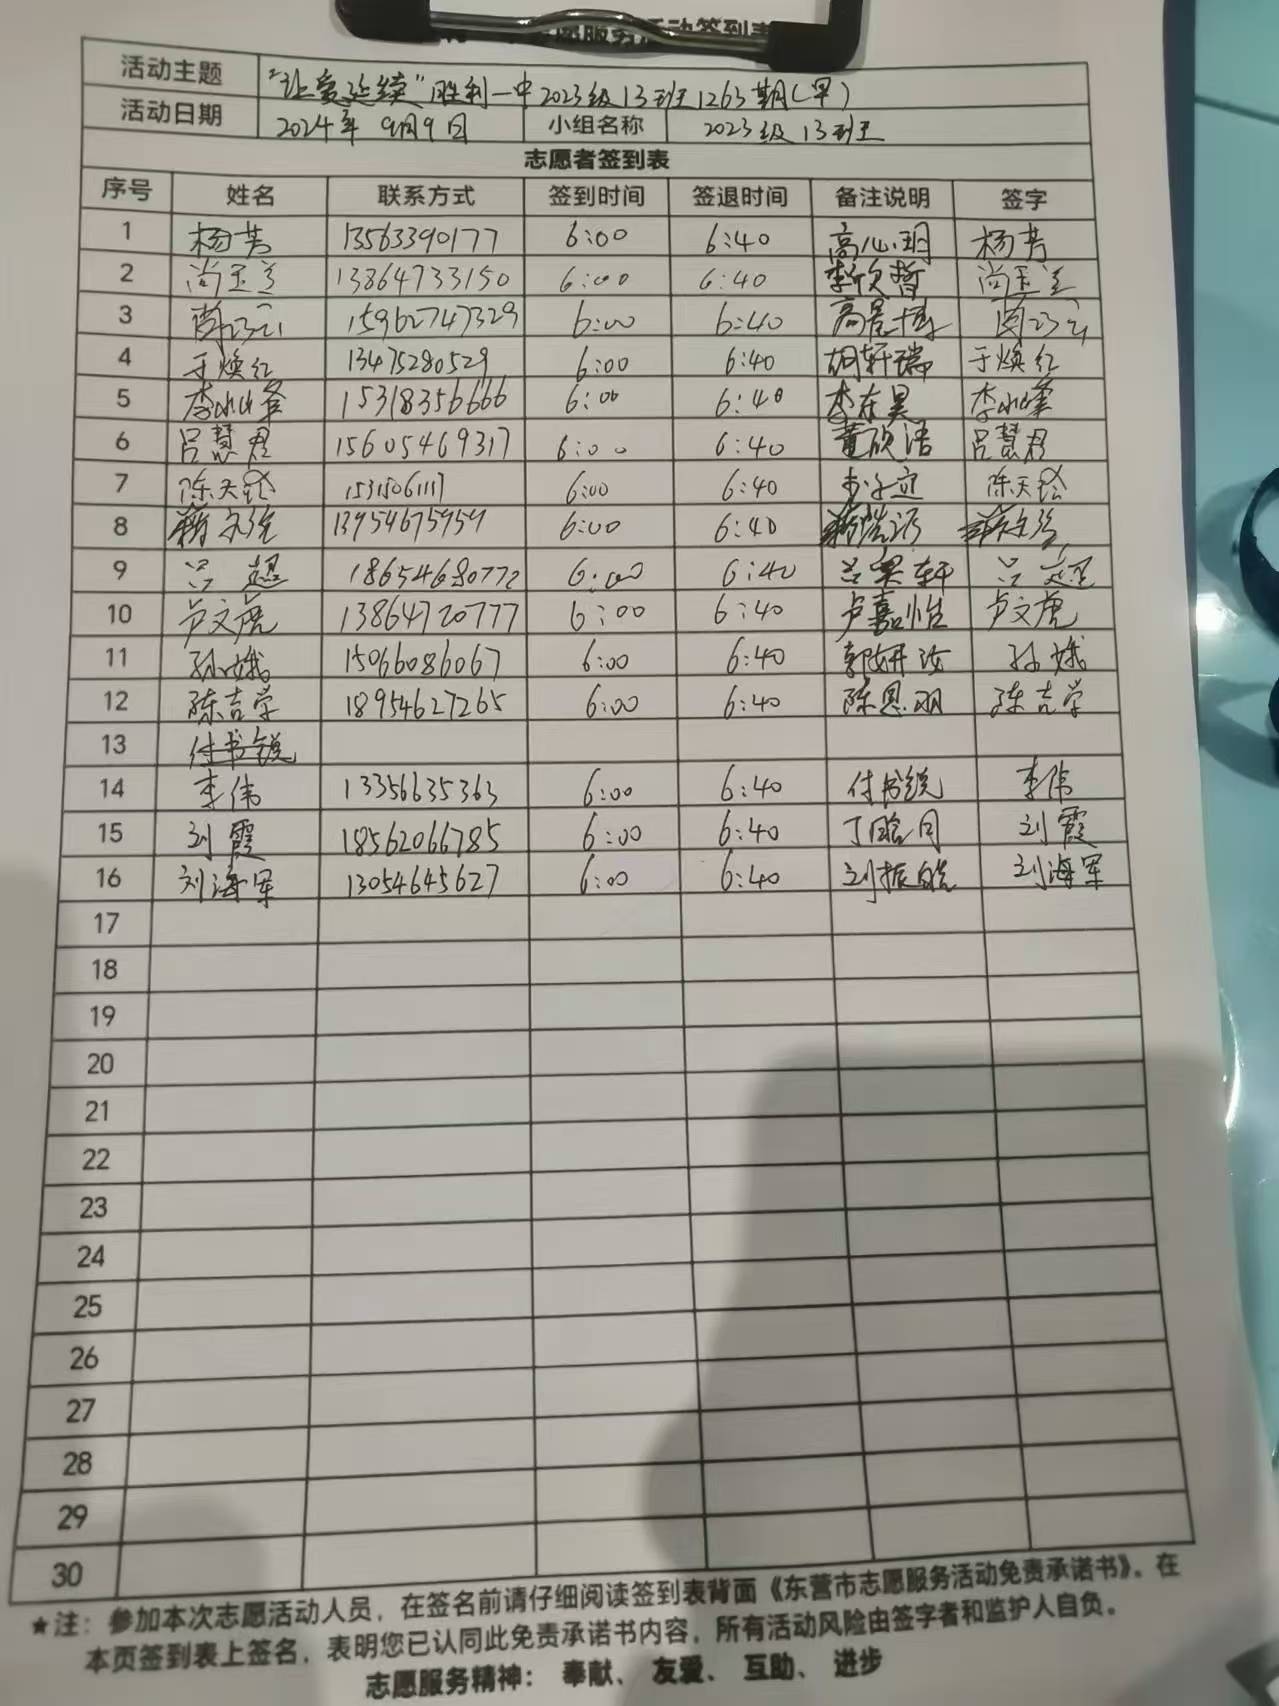 服务活动签到表
活动主题 “让爱延续”胜利一中2023级13班第1263期(早)
活动日期 2024年9月9日 小组名称 2023级13班
志愿者签到表
序号 姓名 联系方式 签到时间 签退时间 备注说明 签字
1 杨芳 13563390177 6:00 6:40 高心玥 杨芳
2 尚玉兰 13864733150 6:00 6:40 李欣哲 尚玉兰
3 15962747329 6:00 6:40 高景博
4 于焕红 13475280529 6:00 6:40 胡轩瑞 于焕红
5 李业峰 15318356666 6:00 6:40 李东昊 李业峰
6 吕慧君 15605469317 6:00 6:40 董欣浩 吕慧君
7 陈天 15315061117 6:00 6:40 陈天
8 蒋 13954675959 6:00 6:40 蒋
9 吕超 18654680772 6:00 6:40 吕奥轩 吕超
10 卢文虎 13864720777 6:00 6:40 卢嘉惟 卢文虎
11 孙娥 15066086067 6:00 6:40 郭妍汝 孙娥
12 陈吉学 18954627265 6:00 6:40 陈恩羽 陈吉学
13 付书锐
14 李伟 13356635363 6:00 6:40 付书锐 李伟
15 刘霞 18562066785 6:00 6:40 丁晗同 刘霞
16 刘海军 13054645627 6:00 6:40 刘振皓 刘海军
17
18
19
20
21
22
23
24
25
26
27
28
29
30
★注：参加本次志愿活动人员，在签名前请仔细阅读签到表背面《东营市志愿服务活动免责承诺书》。在
本页签到表上签名，表明您已认同此免责承诺书内容，所有活动风险由签字者和监护人自负。
志愿服务精神：奉献、友爱、互助、进步